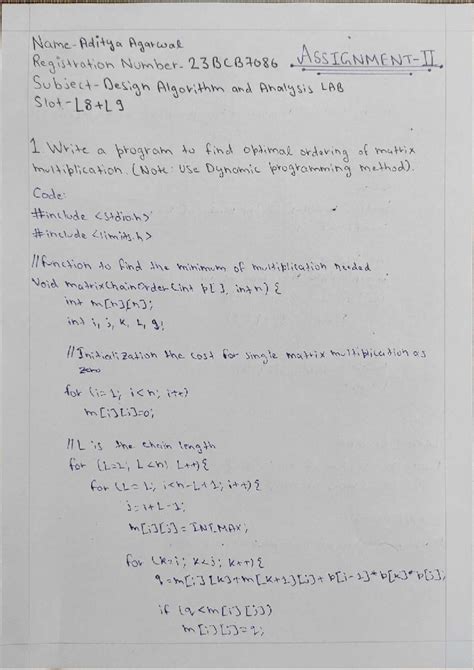 Name-Aditya Agarwal
Registration Number-23BCB7086
ASSIGNMENT-II
Subject-Design Algorithm and Analysis LAB
Slot-L8+L9
1 Write a program to find optimal ordering of matrix
multiplication. (Note: Use Dynamic programming method).
Code:
#include <stdio.h>
#include <limits.h>
//function to find the minimum of multiplication needed
Void matrixChainOrder(int p[], int n) {
int m[n][n];
int i, j, k, L, q;
//Initialization the cost for single matrix multiplication as
zero
for (i=1; i<n; i++)
m[i][i]=0;
//L is the chain length
for (L=2; L<n; L++){
for (L=1; i<n-L+1; i++){
j=i+L-1;
m[i][j]=INT_MAX;
for (k=i; k<j; k++){
q=m[i][k]+m[k+1][j]+p[i-1]*p[k]*p[j];
if (q<m[i][j])
m[i][j]=q;